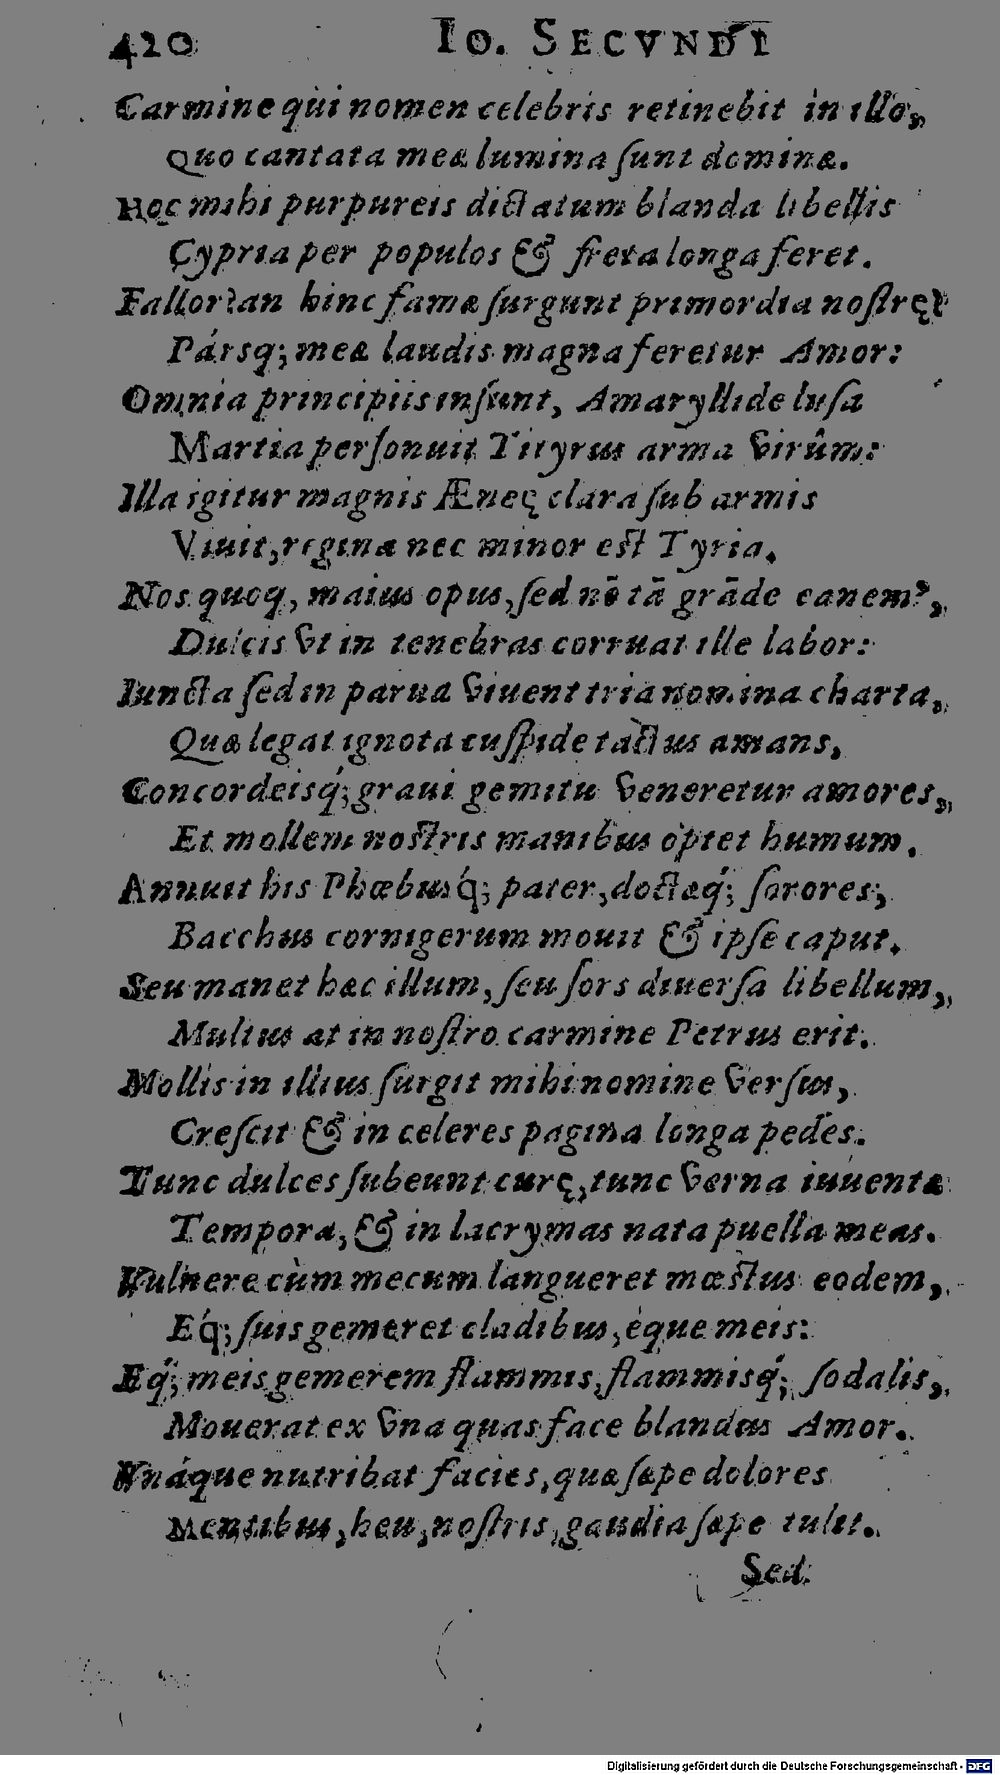 420 IO. SECVNDI
Carmine qui nomen celebris retinebit in illo,
Quo cantata meæ lumina ſunt dominæ.
Hoc mihi purpureis dictatum blanda libellis
Cypria per populos & freta longa feret.
Fallor? an hinc famæ ſurgunt primordia noſtrę?
Pársq; meæ laudis magna feretur Amor:
Omnia principiis inſunt, Amaryllide luſa
Martia perſonuit Tityrus arma virûm:
Illa igitur magnis Æneę clara ſub armis
Viuit, reginæ nec minor eſt Tyria.
Nos quoq, maius opus, ſed nō tā grāde canem⁹,
Dulcis vt in tenebras corruat ille labor:
Iuncta ſed in parua viuent tria nomina charta,
Quæ legat ignota cuſpide tactus amans,
Concordeisq́; graui gemitu veneretur amores,
Et mollem noſtris manibus optet humum.
Annuit his Phœbusq́; pater, doctæq́; ſorores,
Bacchus cornigerum mouit & ipſe caput.
Seu manet hæc illum, ſeu ſors diuerſa libellum,
Multus at in noſtro carmine Petrus erit.
Mollis in illius ſurgit mihi nomine verſus,
Creſcit & in celeres pagina longa pedes.
Tunc dulces ſubeunt curę, tunc verna iuuentæ
Tempora, & in lacrymas nata puella meas.
Vulnere cùm mecum langueret mœſtus eodem,
Eq́; ſuis gemeret cladibus, èque meis:
Eq́; meis gemerem flammis, flammisq́; ſodalis,
Mouerat ex vna quas face blandus Amor.
Vnáque nutribat facies, quæ ſæpe dolores
Mentibus, heu, noſtris, gaudia ſæpe tulit.
Sed
Digitalisierung gefördert durch die Deutsche Forschungsgemeinschaft - DFG